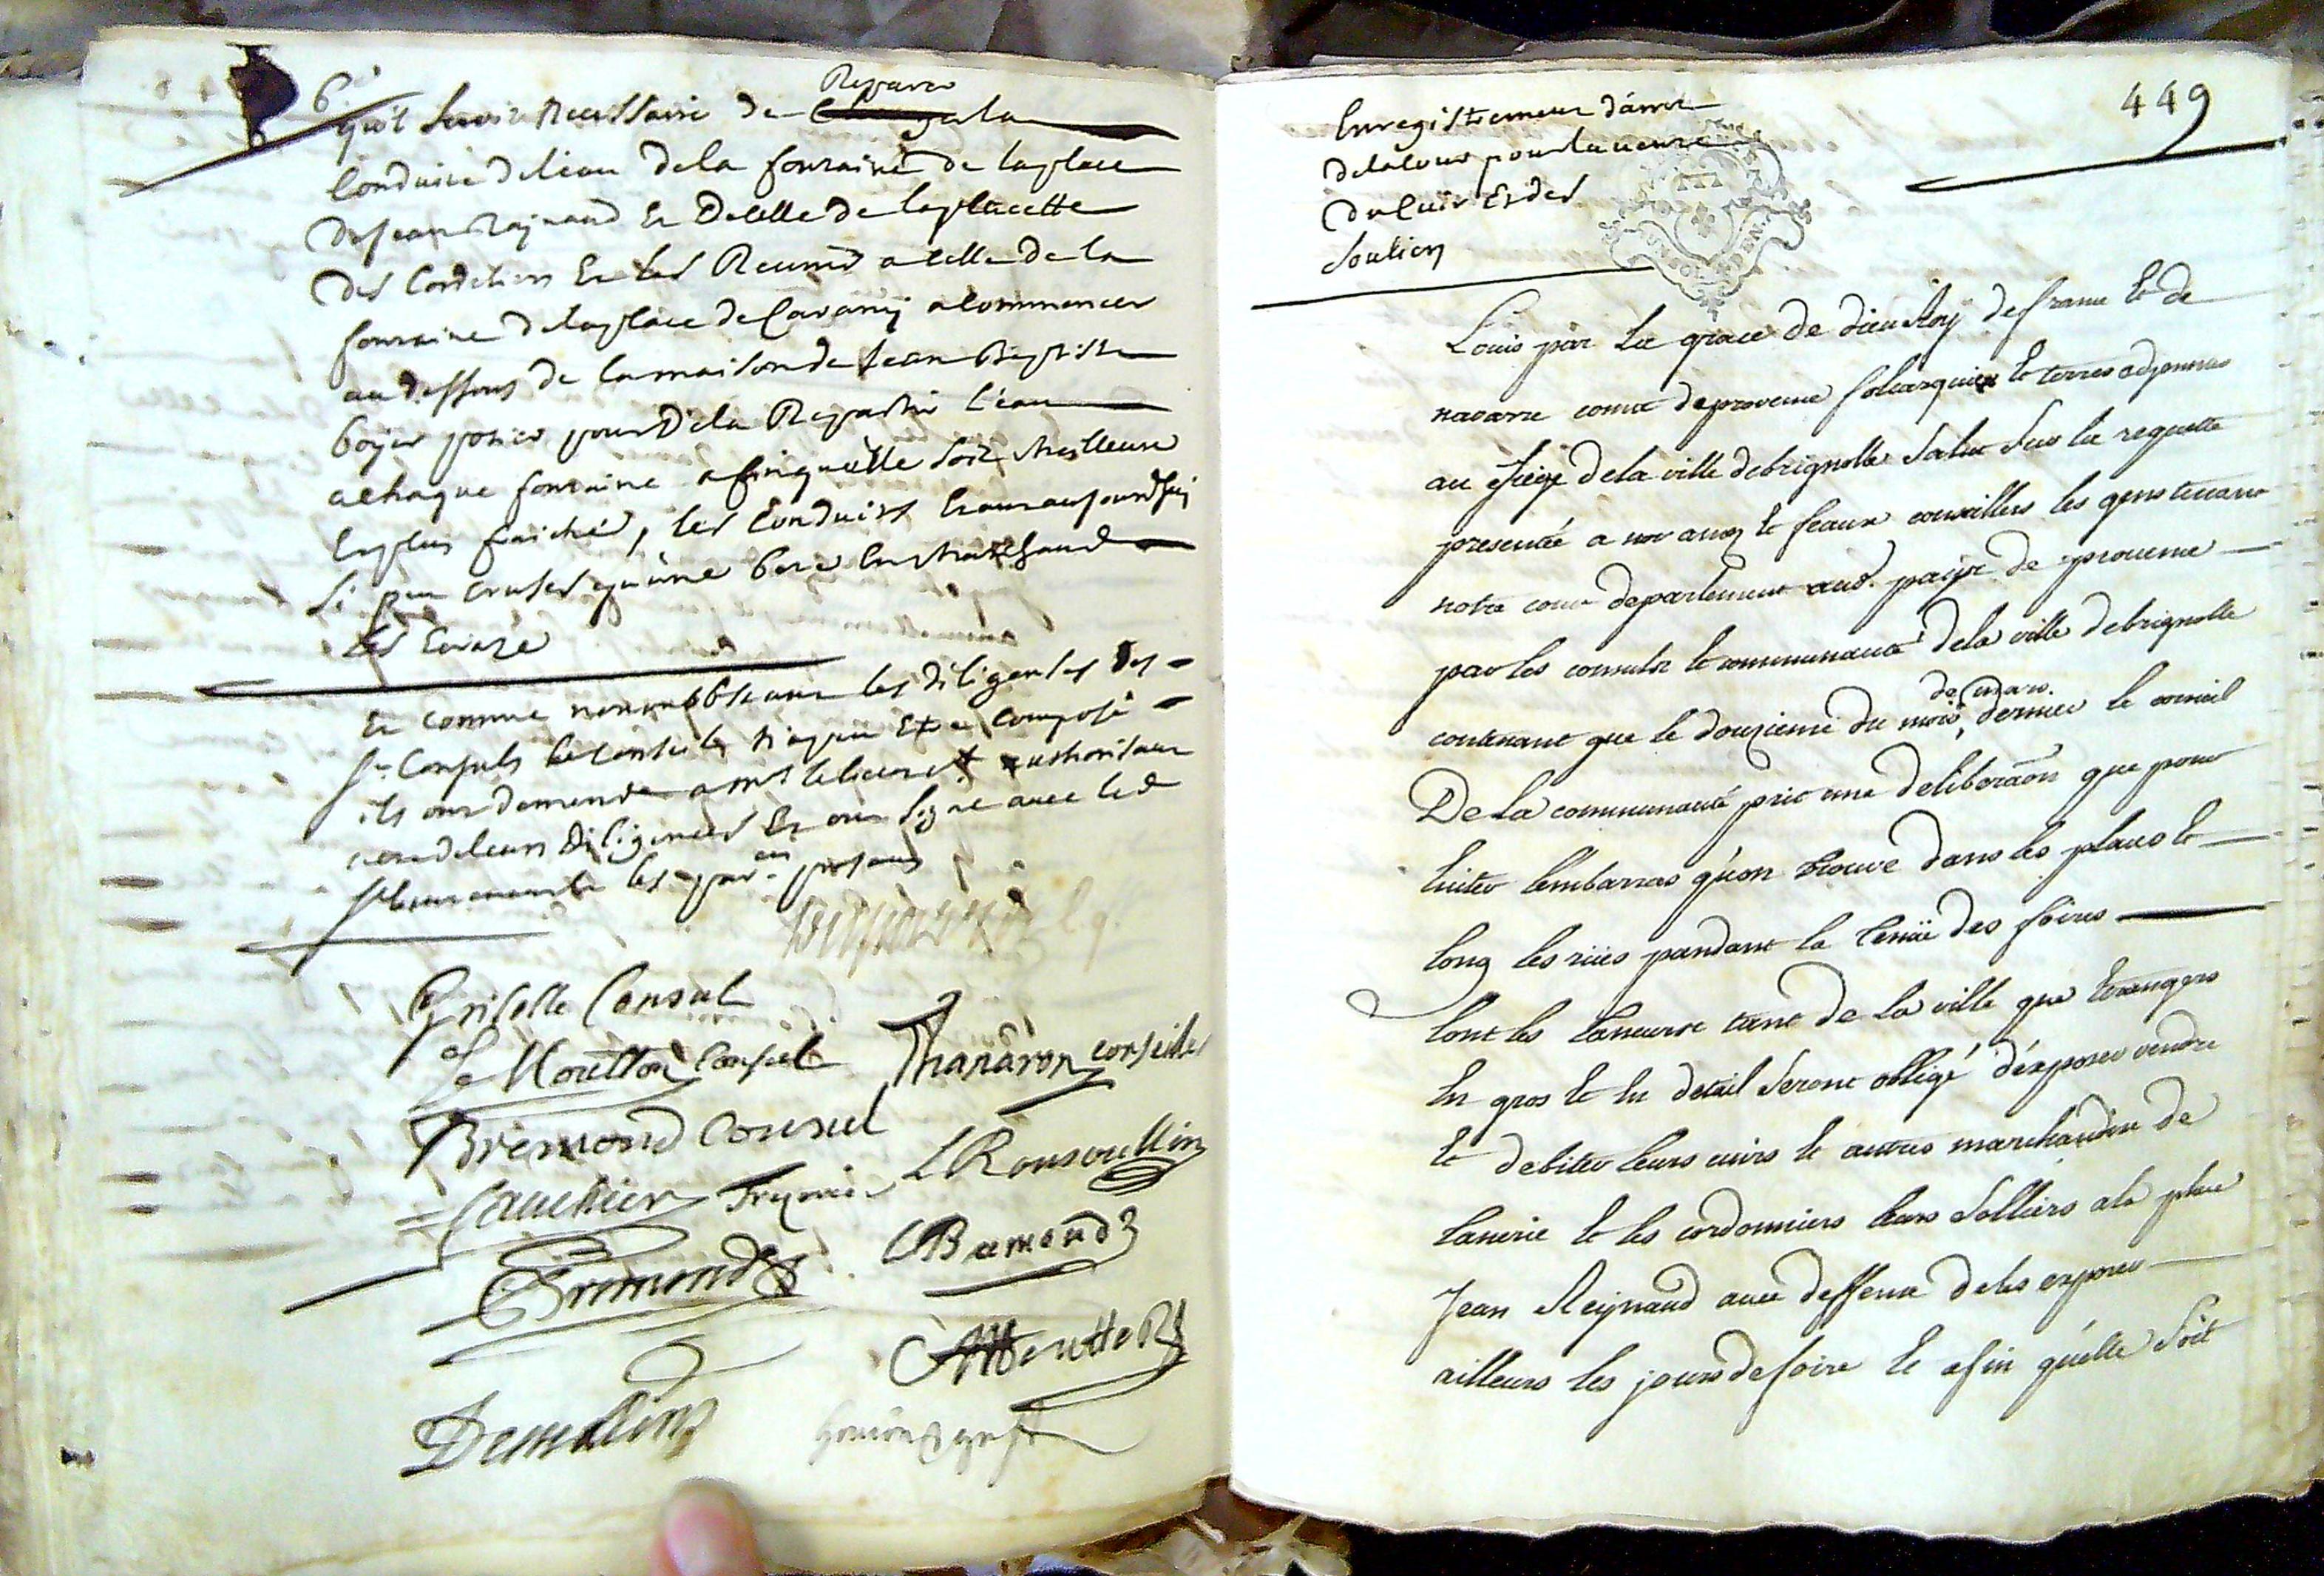 6.
Reparer
qu'il seroit necessaire de la
Conduite de l'eau de la fontaine de la place
de Jean Raynaud Et De Celle de la placette
Des Cordeliers Et les Reunir a Celle de la
fontaine de la place de Caramy a Commancer
au dessous de la maison de Jean Baptiste
boyer potier pour De la Repartir l'eau
a chaque fontaine afin qu'elle soit meilleure
Et plus fraiche, les Conduits Etant aujourdhuy
si peu Creusés qu'une bete En marchand
les Ecraze
Et Comme nonobstant les diligences des
Srs Consuls le Conseil
ils ont demandé a mr le lieut.
de leurs Diligences Et ont signé avec led
sr lieutenant Et les presants
Griselle Consul
Moutton Consul
Thanaron conseiller
Bremond Conseul
Gautier
L Ronsoullin
Bremond
Bremond
449
Enregistrement d'arret
de la Cour pour la vente
du Cuir Et des
souliers
Louis par la grace de dieu Roy de france Et de
navarre comte de provence folcarquier Et terres adjacentes
au siege de la ville de brignolle Salut Sur la requette
presentée a nos amez Et feaux conseillers les gens tenant
notre cour de parlement aud. pays de provence
par les consuls Et communauté de la ville de brignolle
de mars.
contenant que le douzieme du mois, dernier le conseil
De la communauté prit une deliberaôn que pour
Eviter l'embarras qu'on trouve dans les places Et
long les rües pandant la tenüe des foires
tout les taneurs tant de la ville que Etrangers
En gros Et En detail Seront obligé d'exposer vendre
Et debiter leurs cuirs Et autres marchandise de
tanerie Et les cordonniers leurs Solliers a la place
Jean Reynaud avec deffense de les exposer
ailleurs les jours de foire Et afin qu'elle Soit